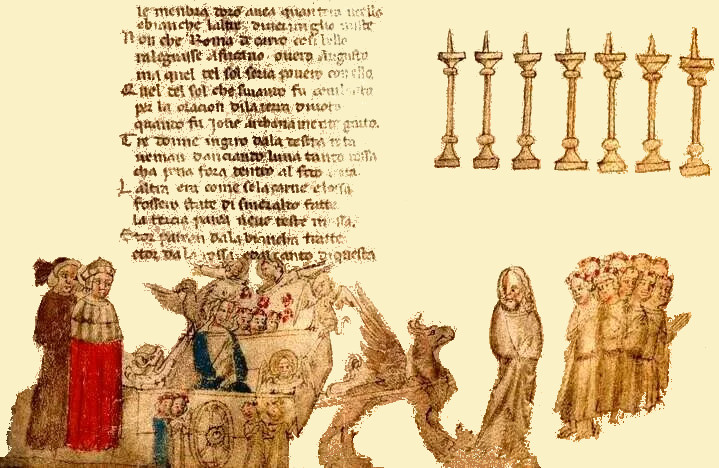 le membra doro avea quanto uccello
e bianche laltre
Non che Roma de carro cosi bello
ralegrasse Africano overo Augusto
ma quel del sol seria povero con ello
Quel del sol che sviando fu combusto
per la oracion dila terra divota
quanto fu Jove archanamente giusto.
Tre donne ingiro dala destra rota
venian danciando luna tanto rossa
cha pena fora dentro al foco
Laltra era come se la carne e lossa
fossero state di smeralto fatte
la tercia parea neve teste mossa.
Et or parean dala biancha tratte
et or da la rossa dal canto di questa